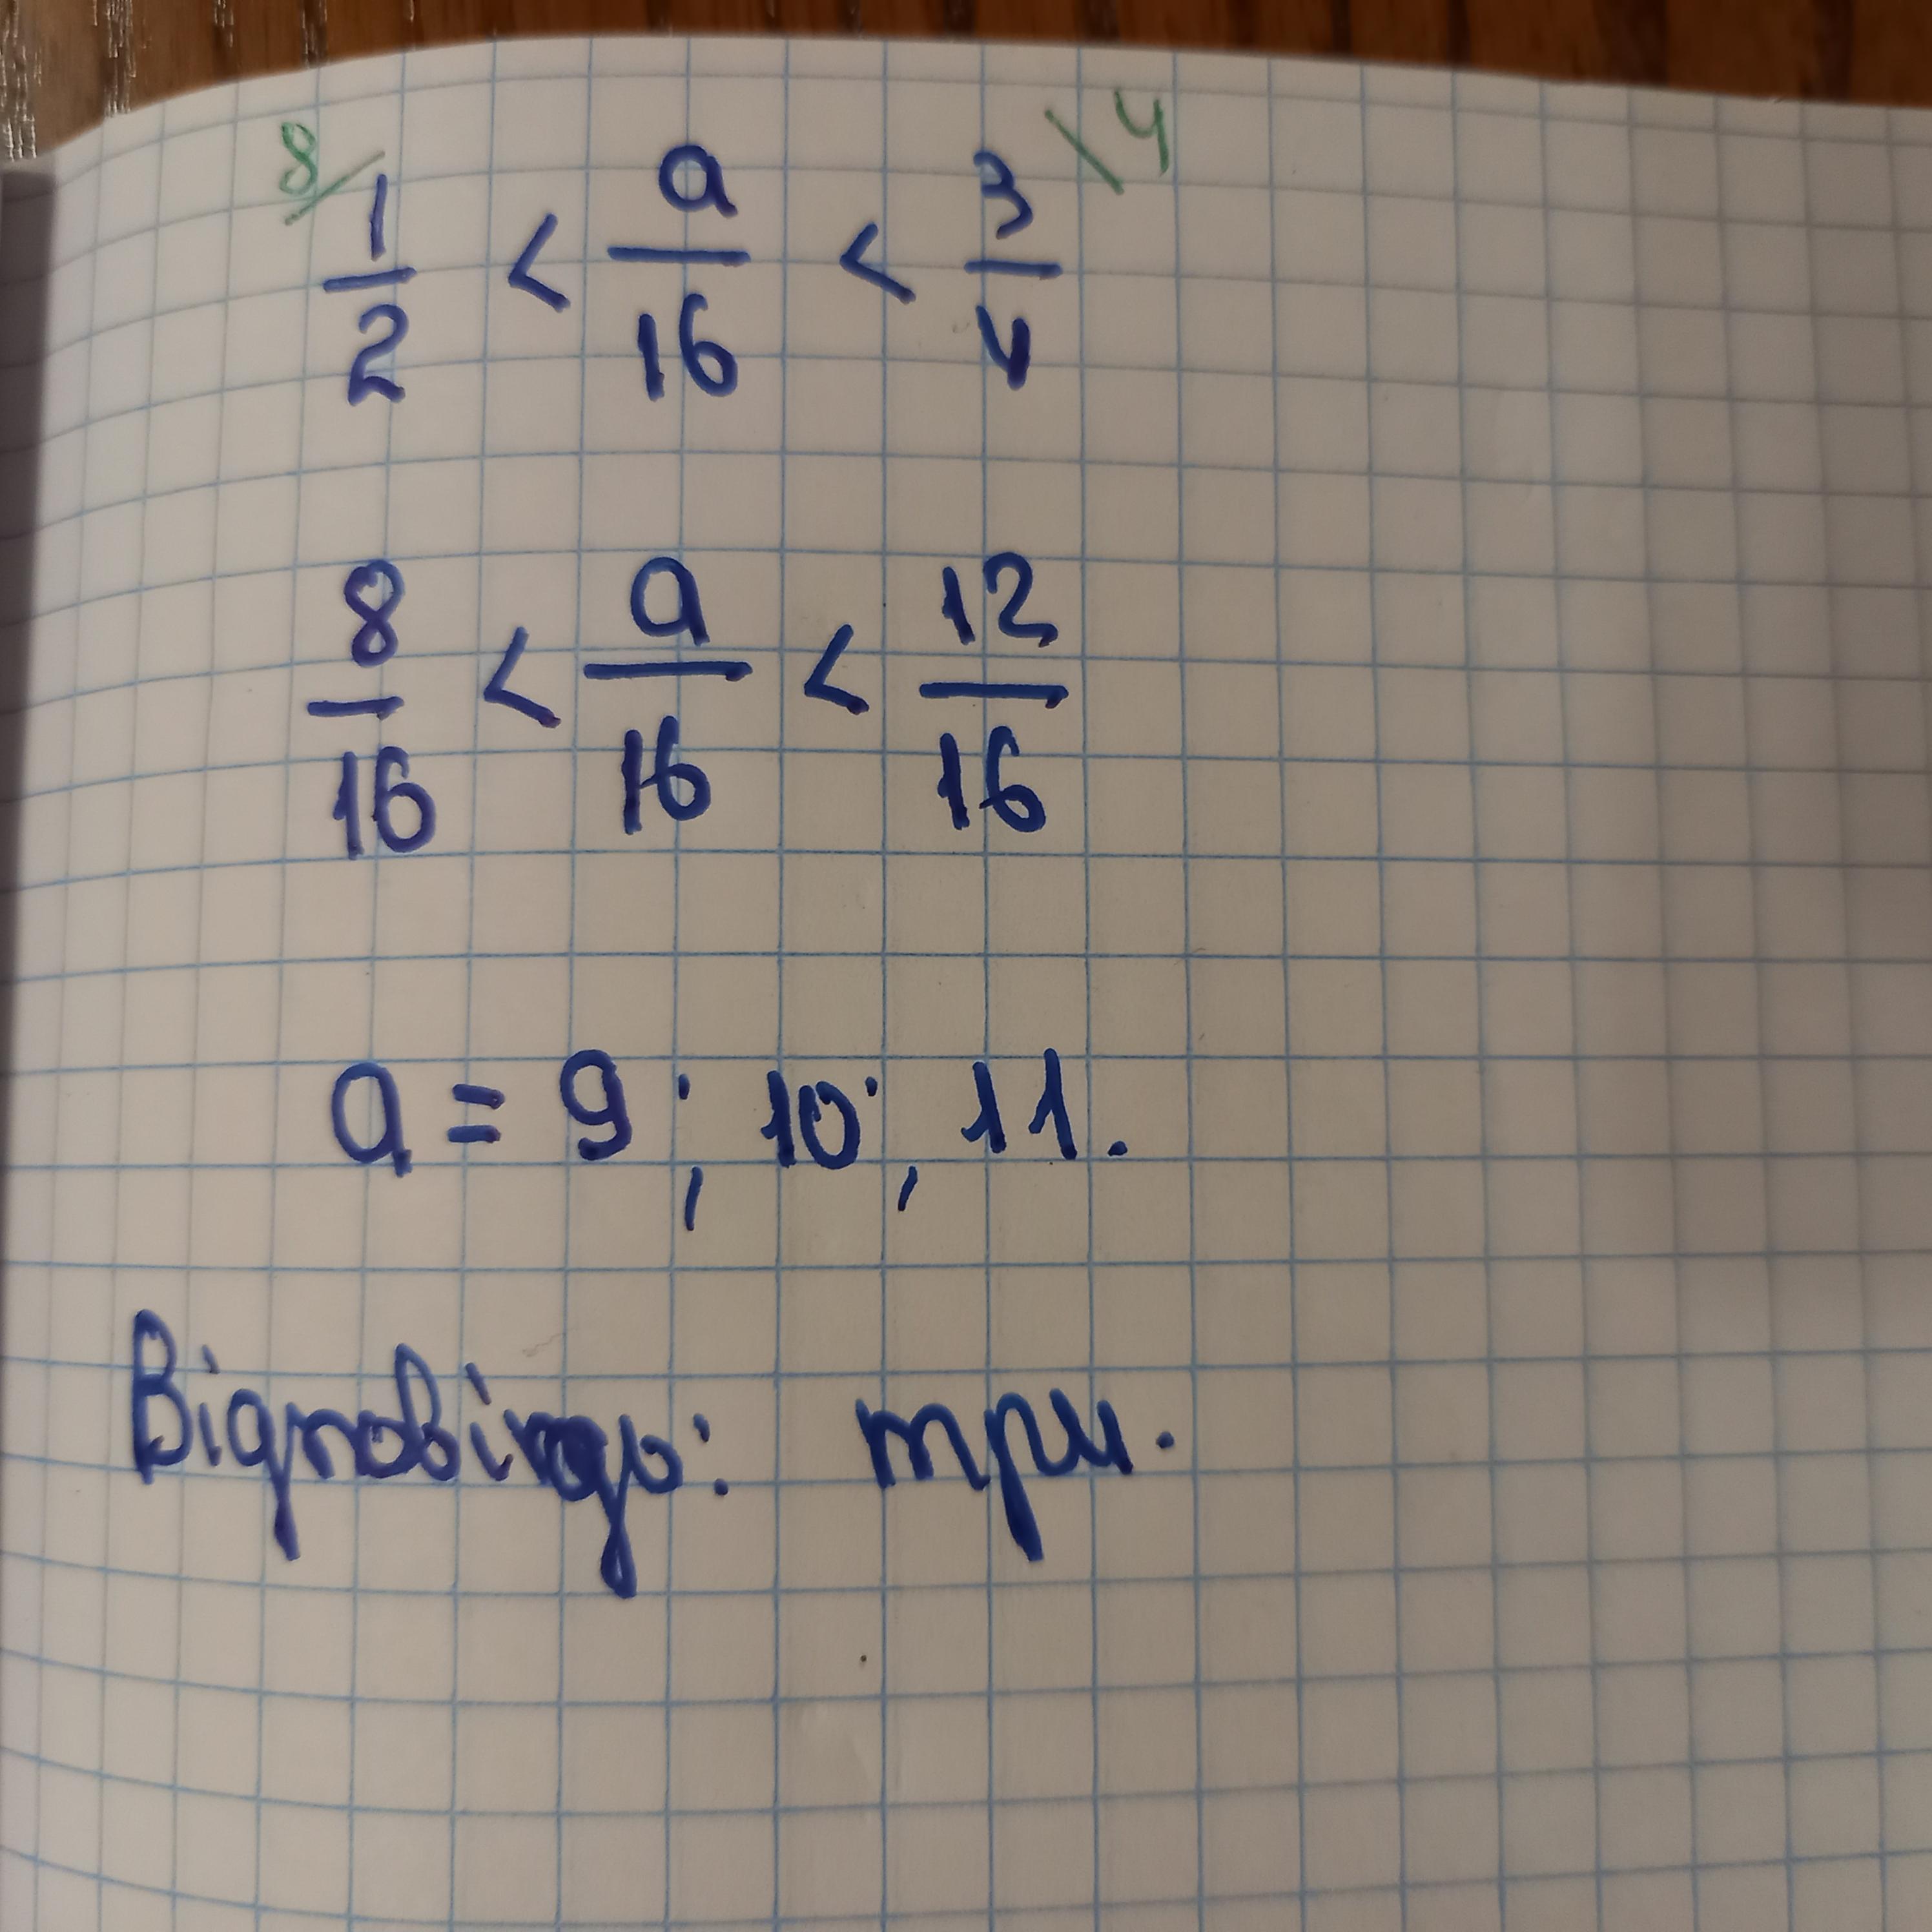 8/ 1/2 < a/16 < 3/4 \4
8/16 < a/16 < 12/16
a = 9; 10; 11.
Відповідь: три.